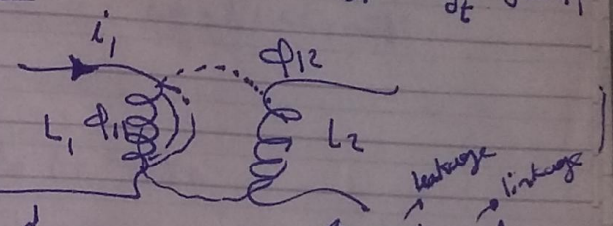 i₁
φ₁₂
L₁ φ₁₁ L₂
leakage
linkage